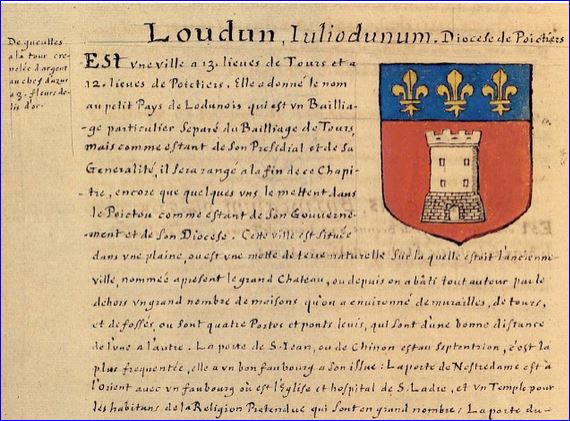 Loudun, Iuliodunum. Diocese de Poictiers
De gueulles
a la tour cre=
nelée d'argent
au chef d'azur
a 3. fleurs de
lis d'or.
Est vne ville a 13. lieues de Tours et a
12. lieues de Poictiers. Elle a donné le nom
au petit Pays de Lodunois qui est vn Baillia-
-ge particulier Separé du Bailliage de Tours,
mais comme estant de Son Presidial et de Sa
Generalité, il Sera rangé a la fin de ce Chapi-
tre, encore que quelques vns le mettent dans
le Poictou comme estant de Son Gouverne-
-ment et de Son Diocese. Cette ville est Située
dans vne plaine, ou est vne motte de terre naturelle Sur la quelle estoit l'ancienne
ville, nommée apresent le grand Chateau, ou depuis on a bâti tout autour par le
dehors vn grand nombre de maisons qu'on a enuironné de murailles, de tours,
et de fossés, ou sont quatre Portes et ponts leuis, qui sont d'une bonne distance
de l'vne a l'autre. La porte de S. Jean, ou de Chinon est au Septentrion, c'est la
plus frequentée, elle a vn bon faubourg a Son issue: La porte de Nostre dame est à
l'Orient avec vn faubourg où est l'Eglise et hospital de S. Ladre, et vn Temple pour
les habitans de la Religion Pretendue qui Sont en grand nombre: La porte du-